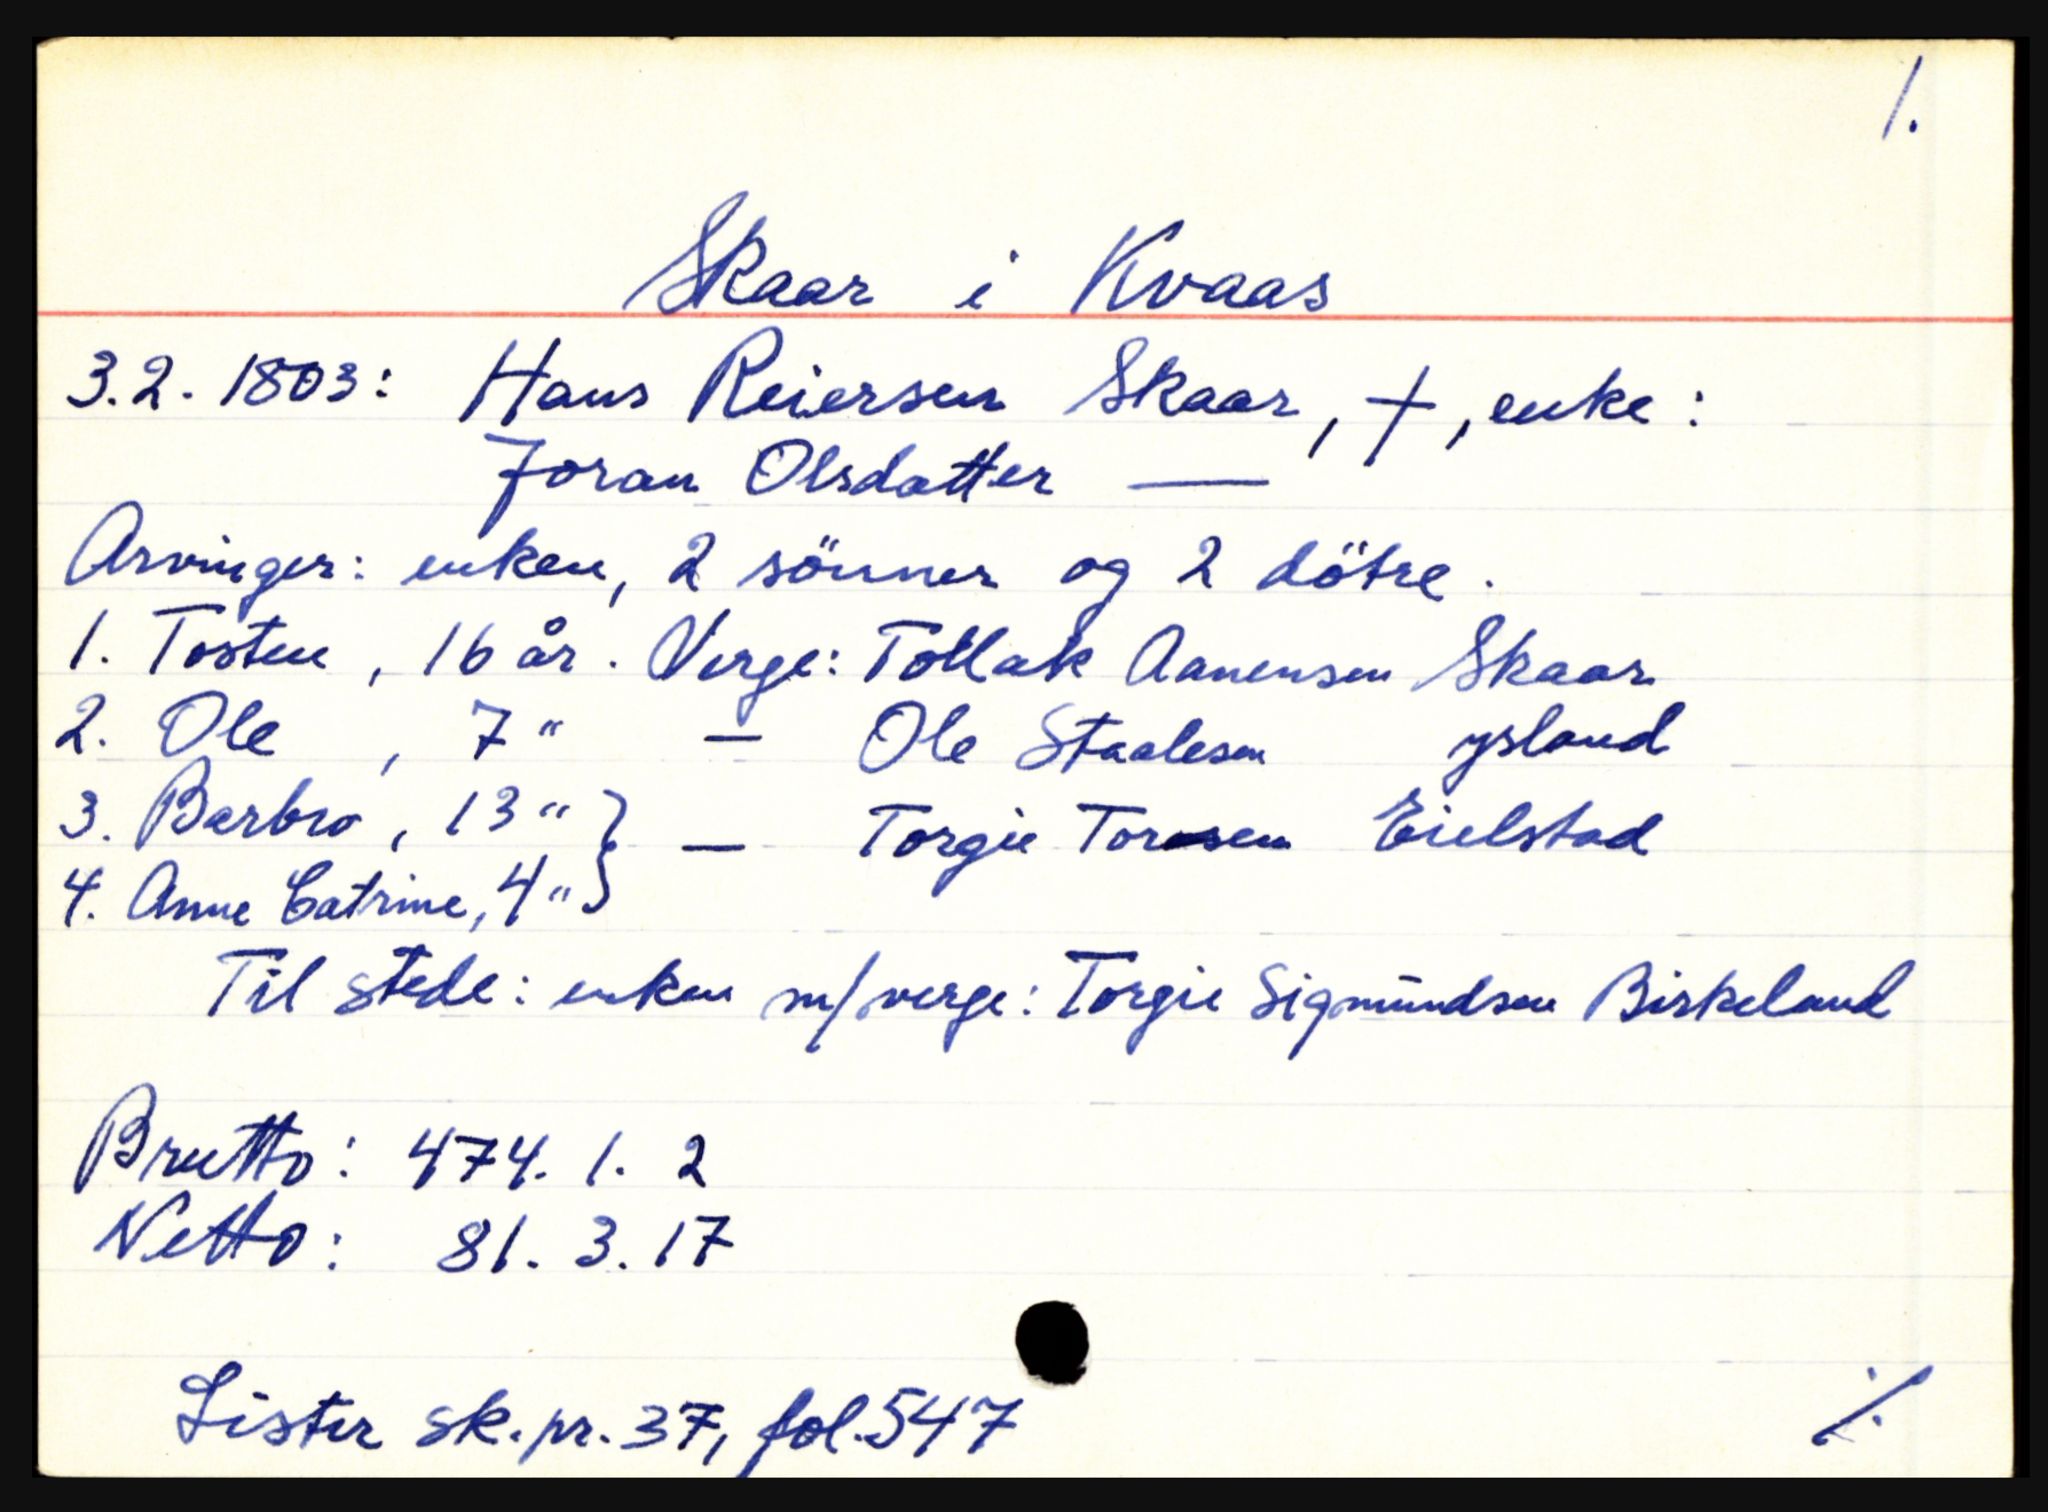 1.
Skaar i Kvaas
3.2. 1803: Hans Reiersen Skaar, †, enke:
Joran Olsdatter —
Arvinger: enken, 2 sönner og 2 dötre.
1. Tosten, 16 år. Verge: Tollak Aanensen Skaar
2. Ole, 7 " — Ole Staalesen ysland
3. Barbro, 13 " } — Torgie Toresen Eielstad
4. Anne Catrine, 4 " }
Til stede: enken m/verge: Torgie Sigmundsen Birkeland
Brutto: 474. 1. 2
Netto: 81. 3. 17
Lister sk.pr. 37, fol. 547
./.